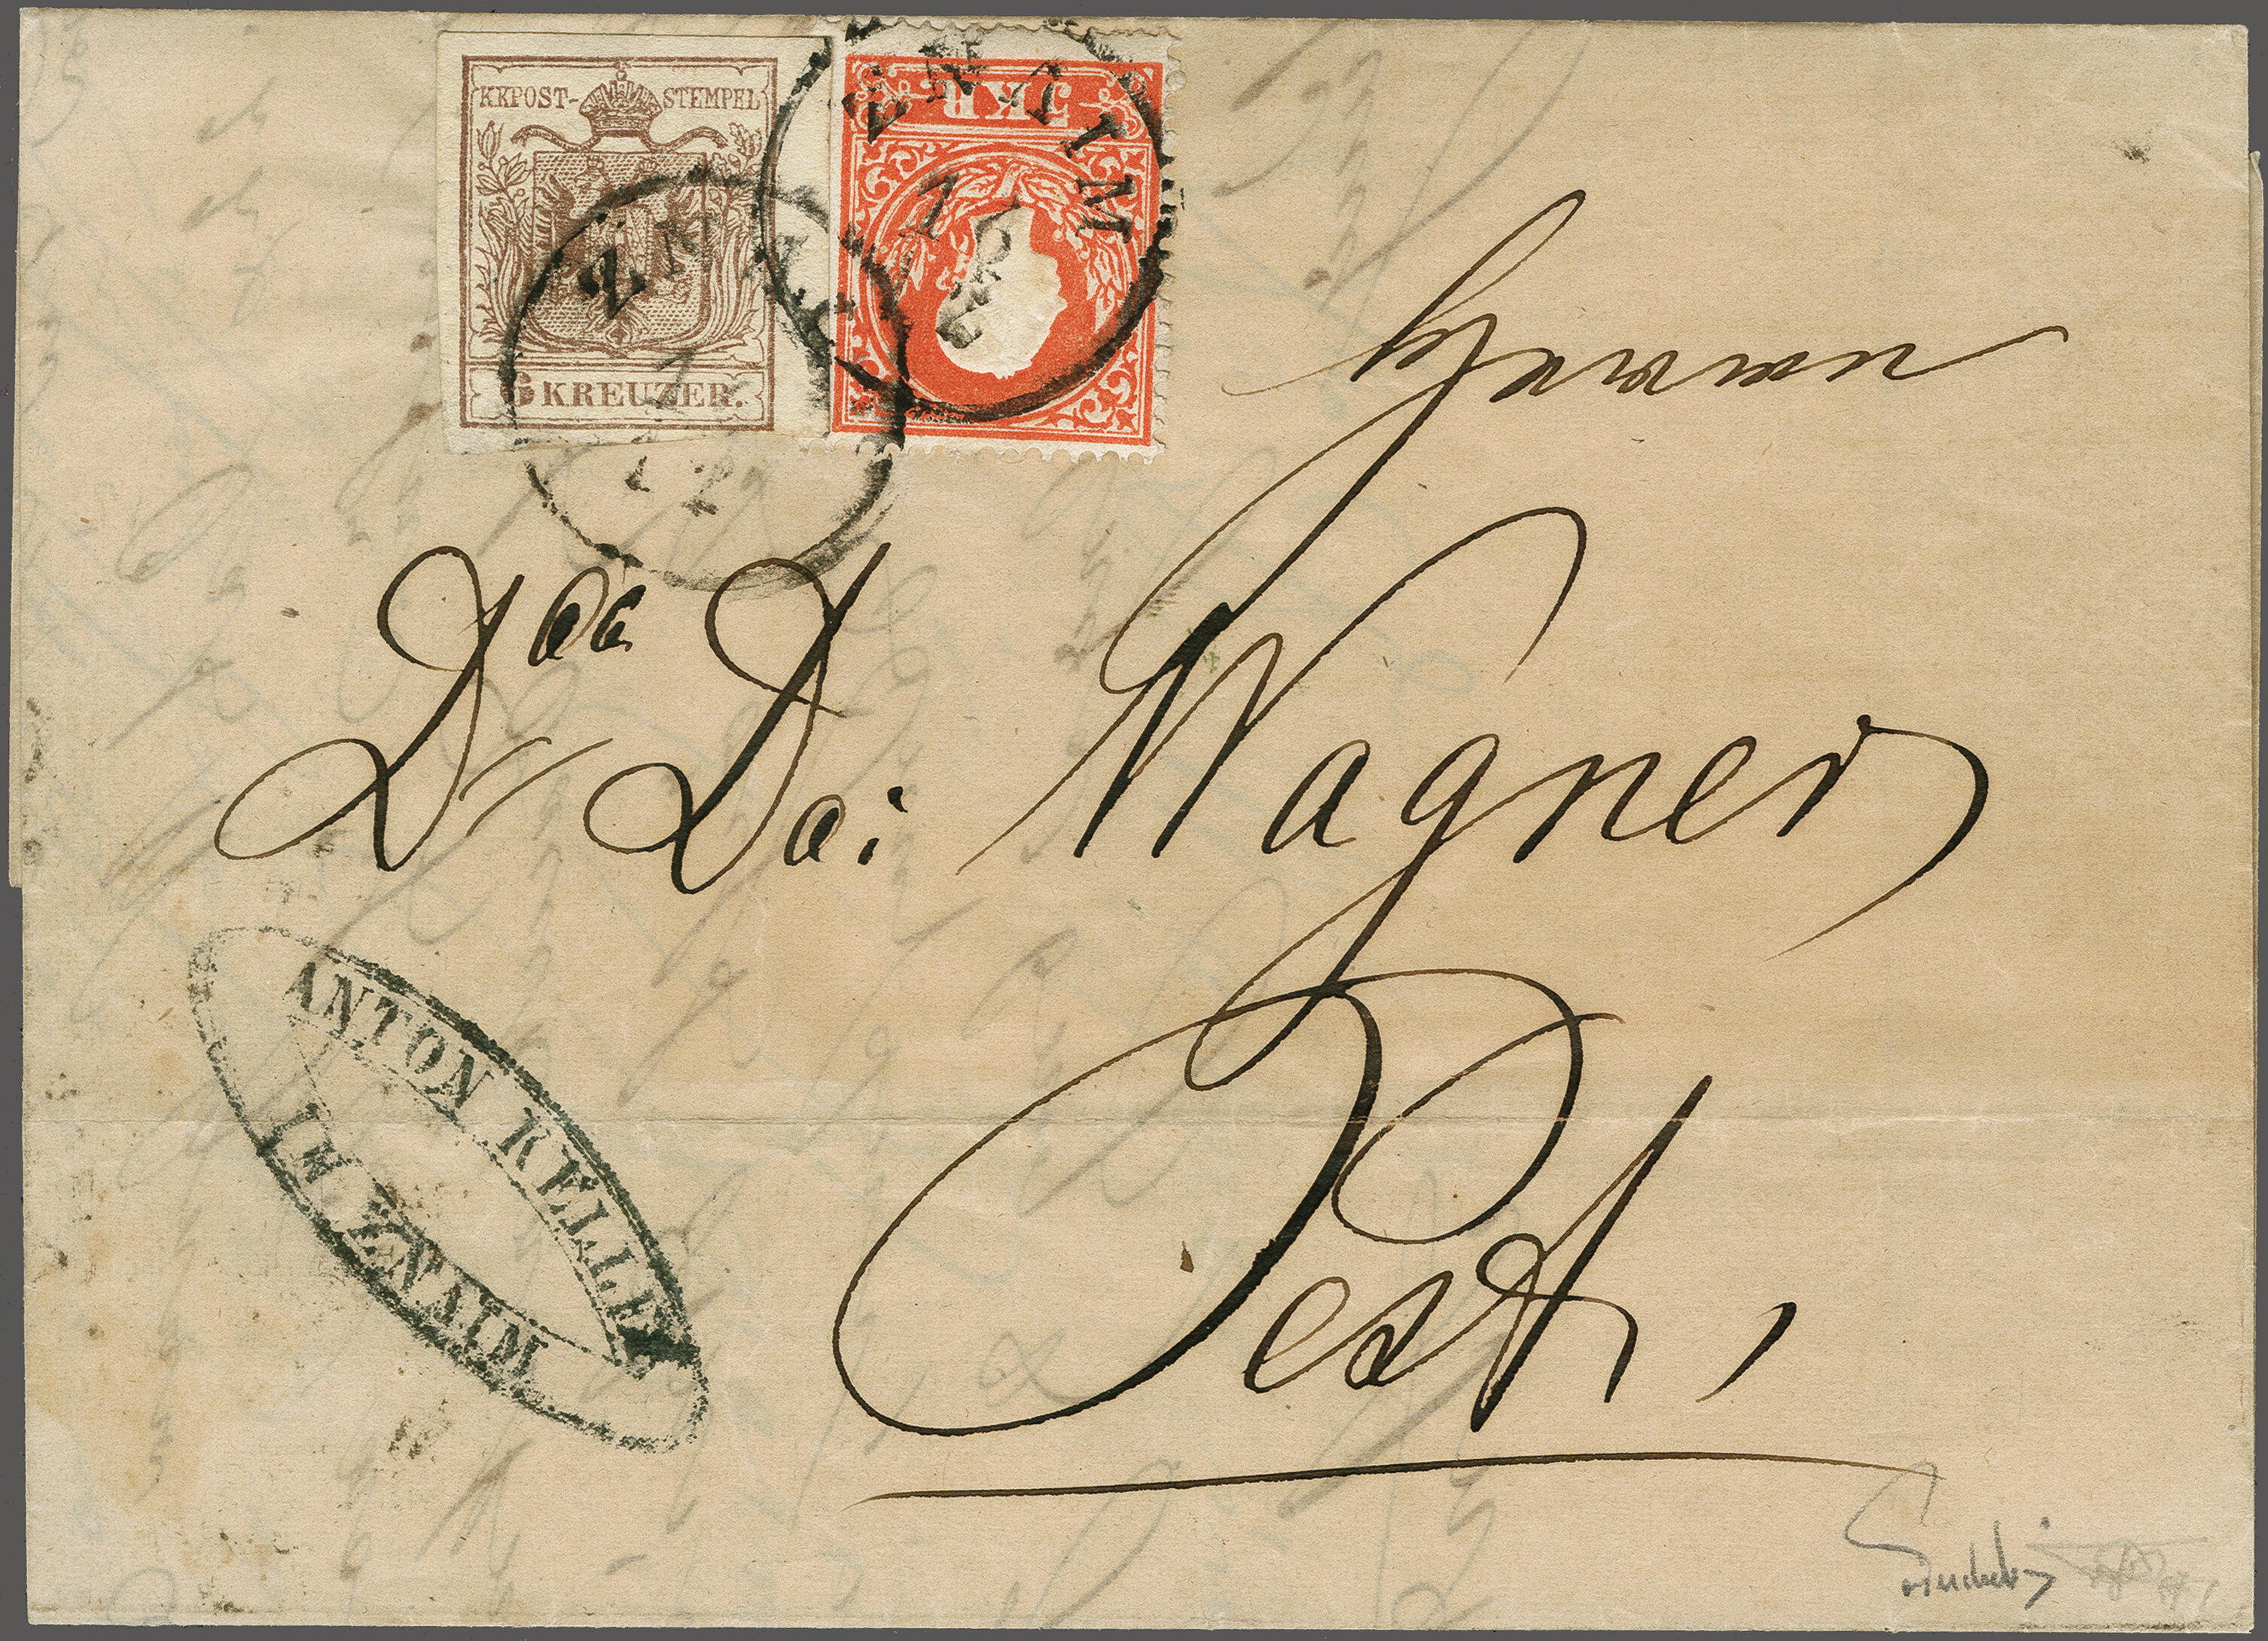 KKPOST-STEMPEL
6 KREUZER.
5 KR
ZNAIM
ZNAIM
Herrn
Wagner
Pest,
ANTON KELLER
IN ZNAIM